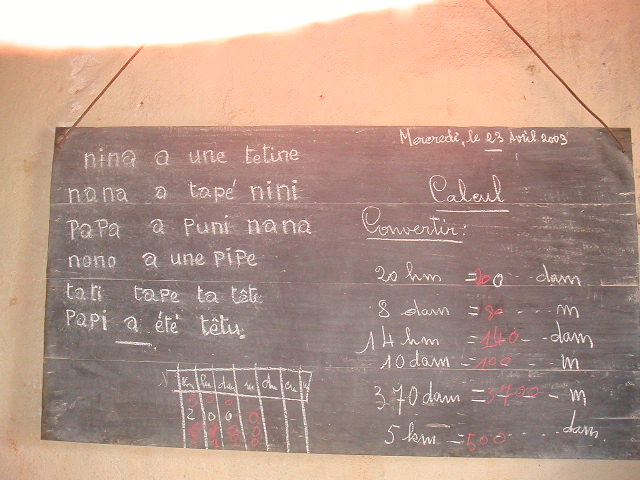 nina a une tetine
nana a tapé nini
PaPa a Puni nana
nono a une PiPe
tati tape ta tête
PaPi a été têtu.
Mercredi, le 23 Avril 2003
Calcul
Convertir:
20 hm = 200 dam
8 dam = 80 m
14 hm = 140 dam
10 dam = 100 m
370 dam = 3700 m
5 km = 500 dam
km hm dam m dm cm m
2 0 0 0